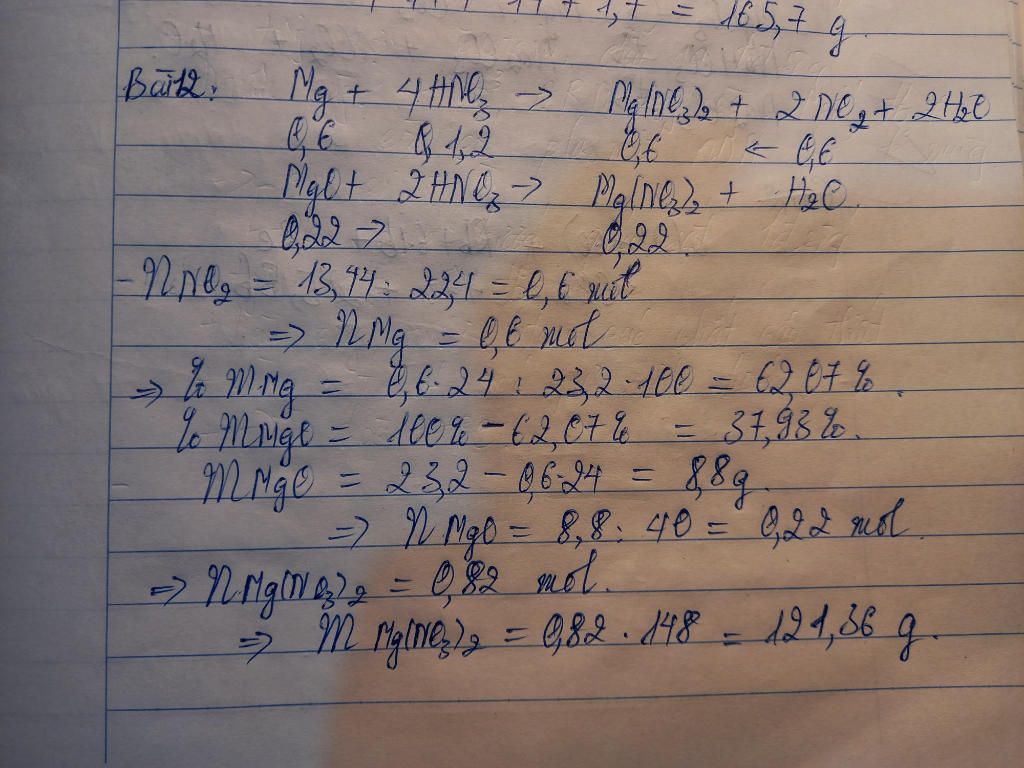 = 165,7 g
Bài 12: Mg + 4HNO3 → Mg(NO3)2 + 2NO2 + 2H2O
0,6 0,1,2 0,6 ← 0,6
MgO + 2HNO3 → Mg(NO3)2 + H2O.
0,22 → 0,22.
- nNO2 = 13,44 : 22,4 = 0,6 mol
=> nMg = 0,6 mol
=> % mMg = 0,6 . 24 : 23,2 . 100 = 62,07%.
% mMgO = 100% - 62,07% = 37,93%.
mMgO = 23,2 - 0,6.24 = 8,8g.
=> nMgO = 8,8 : 40 = 0,22 mol.
=> nMg(NO3)2 = 0,82 mol.
=> mMg(NO3)2 = 0,82 . 148 = 121,36 g.